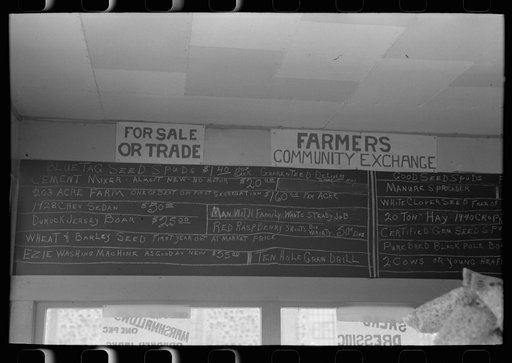 FOR SALE
OR TRADE
FARMERS
COMMUNITY EXCHANGE
BLUE TAG SEED SPUDS $1.40 GUARANTEED DELIVERY
CEMENT MIXER - ALMOST NEW - NO MOTOR $20.00
203 ACRE FARM ONE OF BEST ON FIRST SEGREGATION $60.00 PER ACRE
1928 CHEV SEDAN $50.00
DUROCK JERSEY BOAR $25.00
MAN WITH FAMILY WANTS STEADY JOB
RED RASPBERRY SHOOTS VARIETY 50¢ DOZ
WHEAT & BARLEY SEED FIRST YEAR OUT AT MARKET PRICE
EZIE WASHING MACHINE AS GOOD AS NEW $35.00
TEN HOLE GRAIN DRILL
GOOD SEED SPUDS
MANURE SPREADER
WHITE CLOVER SEED FREE OF
20 TON HAY 1940 CROP
CERTIFIED GEM SEED SP
PURE BRED BLACK POLE BU
2 COWS OR YOUNG HEIF
MARSHMALLOWS
ONE PKG
DRESSING